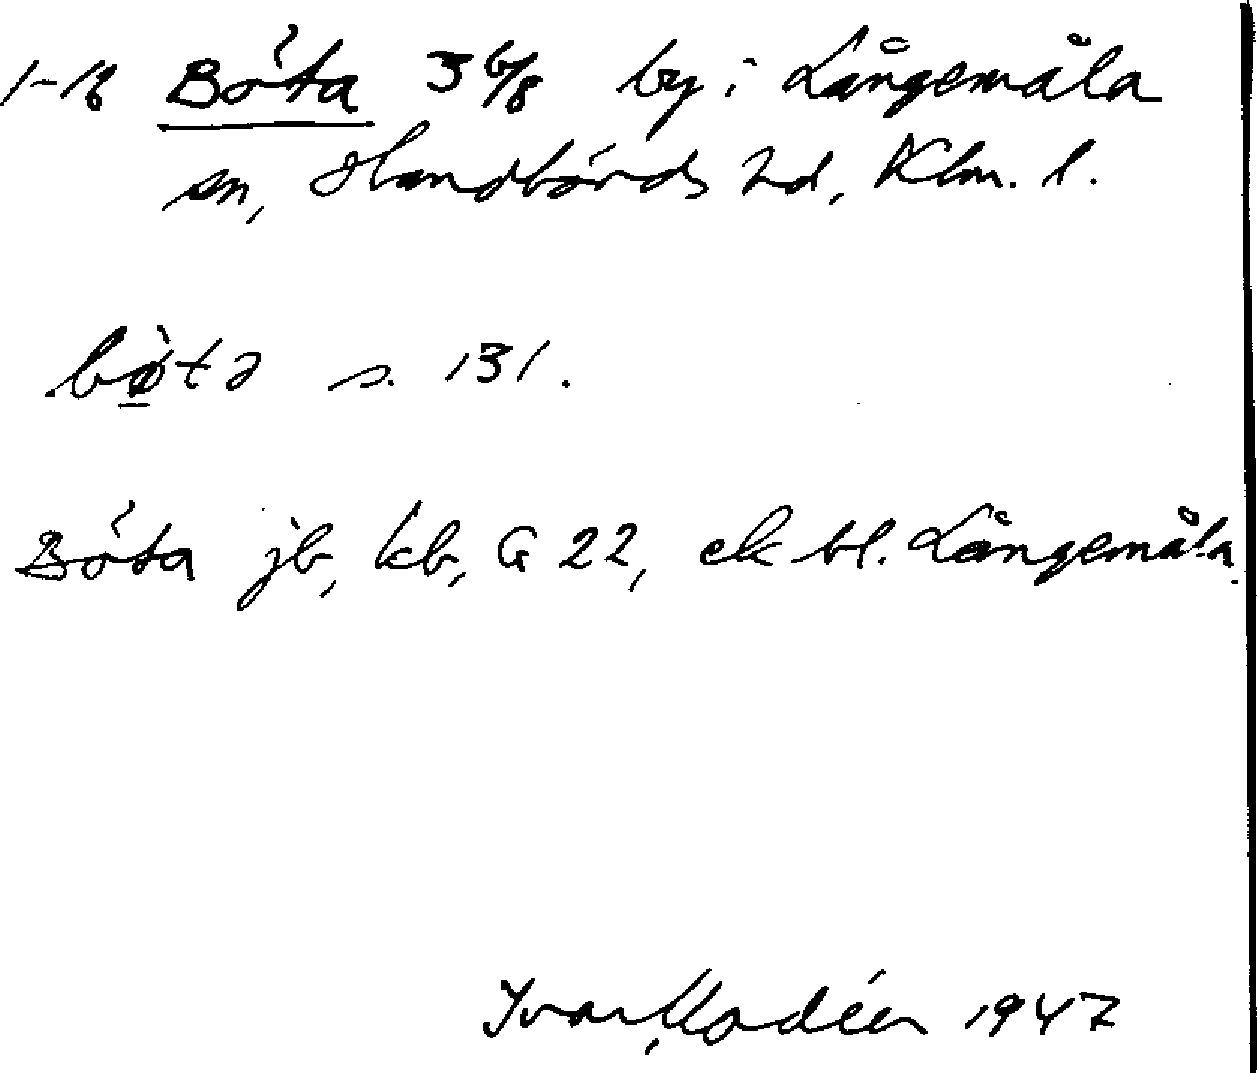 1-18 Böta 3 6/8 by i Långemåla
sn, Handbörds hd, Klm. l.
bø̀tə s. 131.
Böta jb, kb, G 22, ek bl. Långemåla.
Ivar Modéer 1947